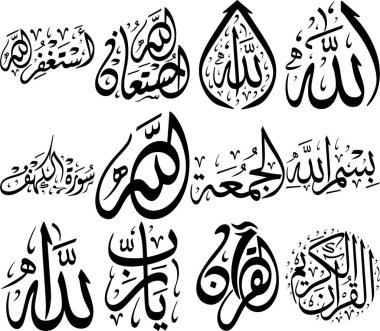 الله
الله
الله المستعان
أستغفر الله
بسم الله
الجمعة
الله
سورة الكهف
القرآن الكريم
القرآن
يا رب
لله